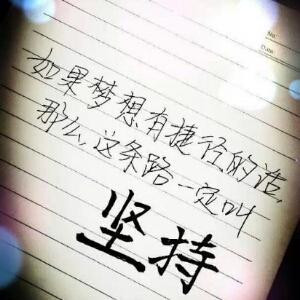 No.
Date
如果梦想有捷径的话,
那么,这条路一定叫
坚持